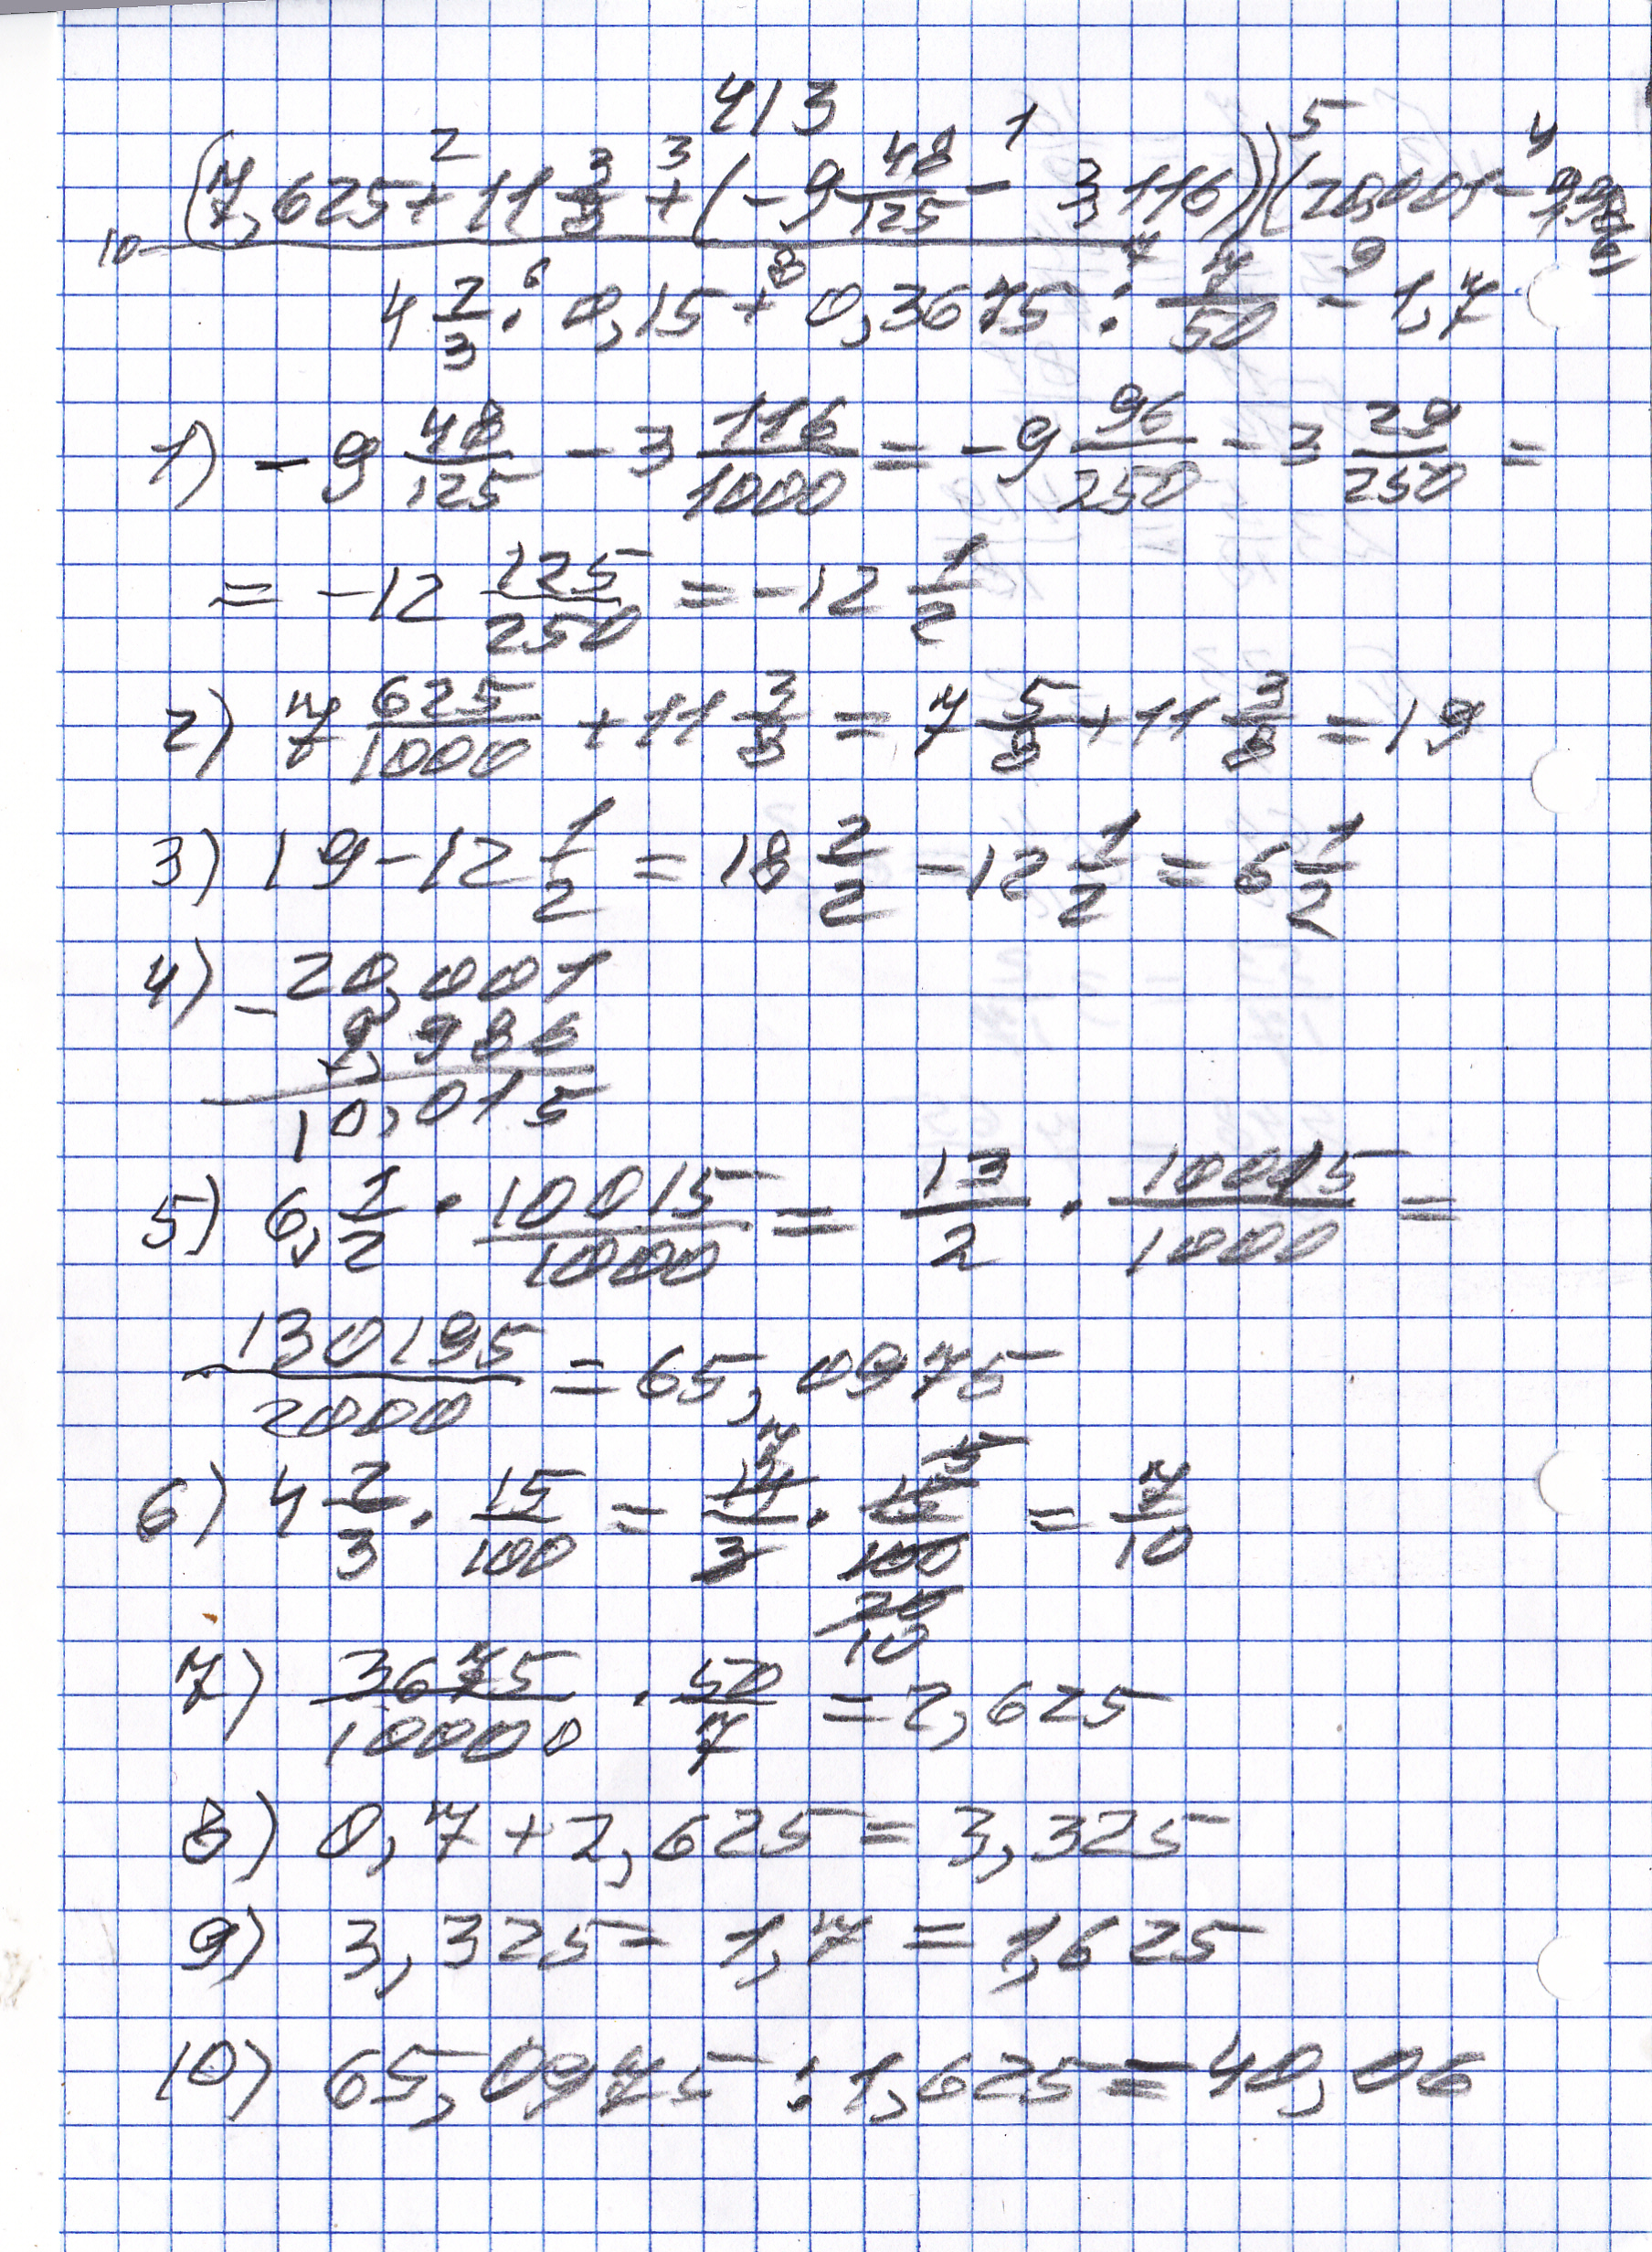 413
(7,625 + 11 3/8 + (-9 48/125 - 3,116)) (20,001 - 9,986)
4 2/3 · 0,15 + 0,3675 : 7/50 - 1,7
1) -9 48/125 - 3 116/1000 = -9 96/250 - 3 29/250 =
= -12 125/250 = -12 1/2
2) 7 625/1000 + 11 3/8 = 7 5/8 + 11 3/8 = 19
3) 19 - 12 1/2 = 18 2/2 - 12 1/2 = 6 1/2
4) - 20,001
9,986
10,015
5) 6, 1/2 · 10015/1000 = 13/2 · 10015/1000 =
130195/2000 = 65,0975
6) 4 2/3 · 15/100 = 14/3 · 15/100 = 7/10
7) 3675/10000 · 50/7 = 2,625
8) 0,7 + 2,625 = 3,325
9) 3,325 - 1,7 = 1,625
10) 65,0975 : 1,625 = 40,06